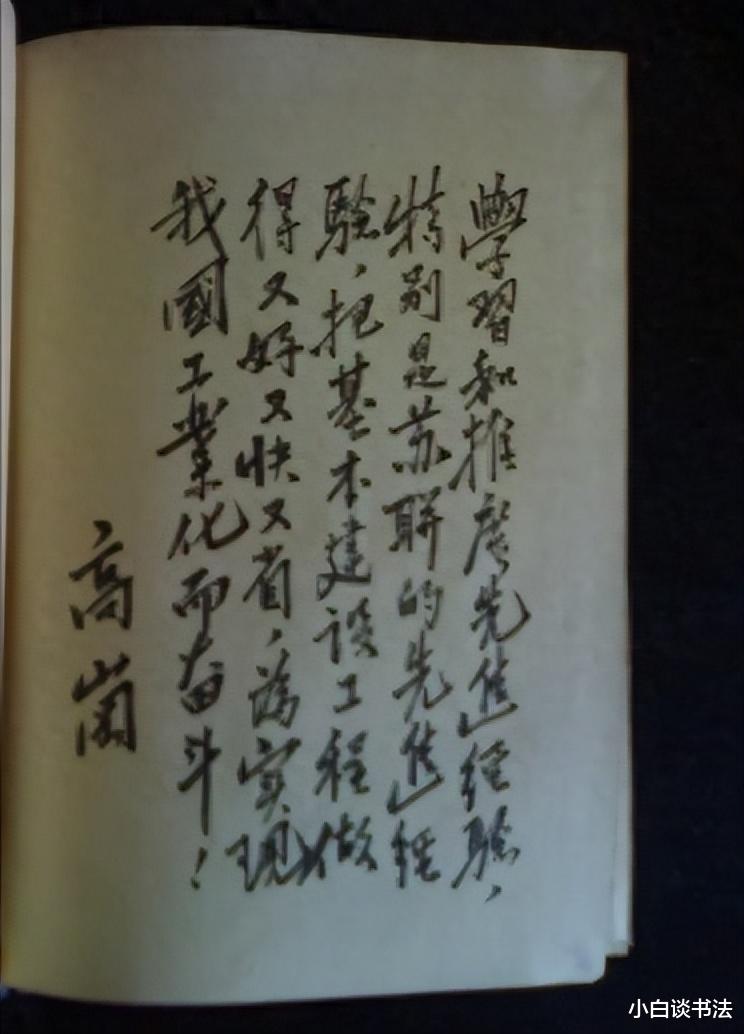 學習和推廣先進經驗，
特别是苏聯的先進經
驗，把基本建設工程做
得又好又快又省，為實現
我國工業化而奋斗！
高崗
小白谈书法